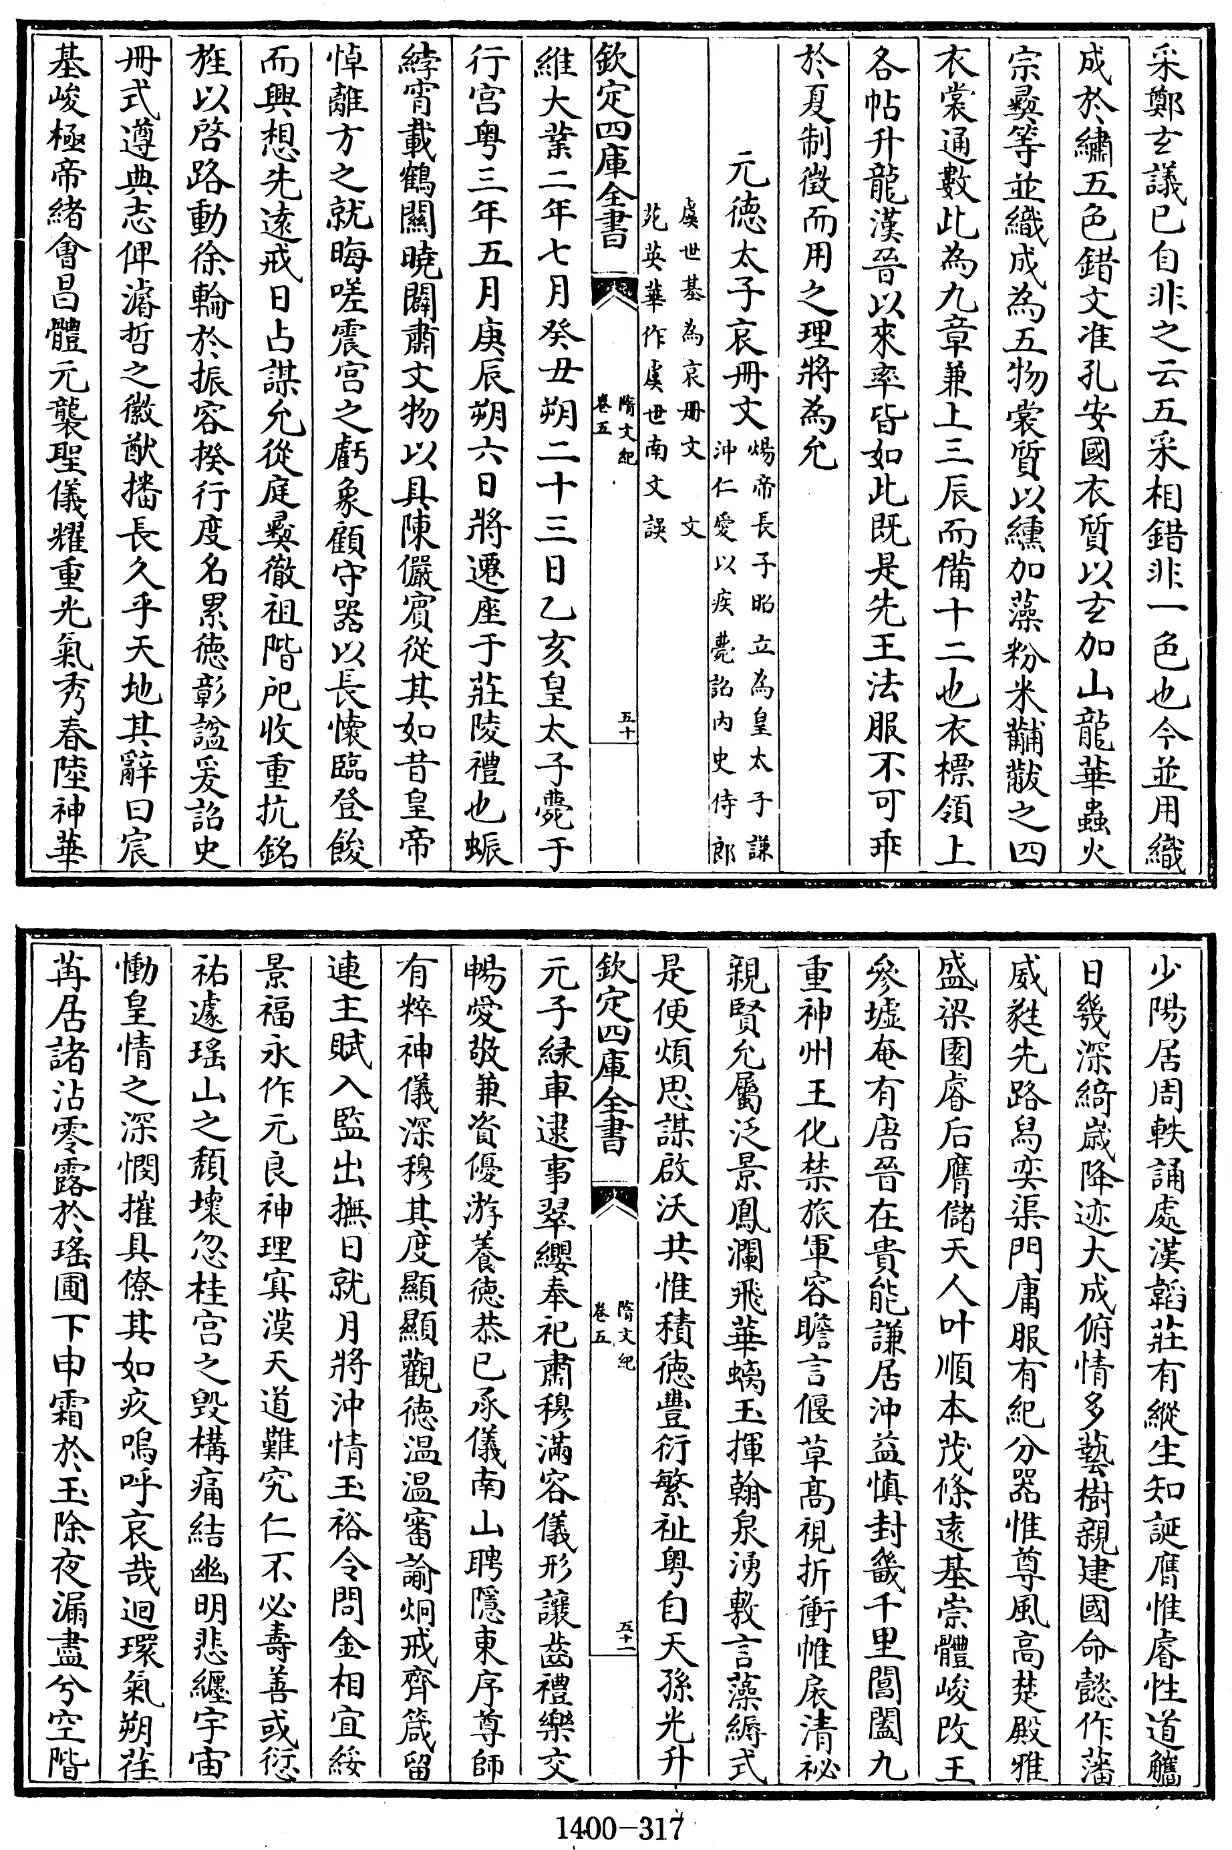 采鄭玄議已自非之云五采相錯非一色也今並用織
成於繡五色錯文准孔安國衣質以玄加山龍華蟲火
宗彝等並織成為五物裳質以纁加藻粉米黼黻之四
衣裳通數此為九章兼上三辰而備十二也衣標領上
各帖升龍漢晉以來率皆如此既是先王法服不可乖
於夏制徵而用之理將為允
元德太子哀冊文
煬帝長子昭立為皇太子謙
沖仁愛以疾薨詔內史侍郎
虞世基為哀冊文 文
苑英華作虞世南文誤
欽定四庫全書
隋文紀
卷五
五十
維大業二年七月癸丑朔二十三日乙亥皇太子薨于
行宮粤三年五月庚辰朔六日將遷座于莊陵禮也蜃
綍宵載鶴關曉闢肅文物以具陳儼賓從其如昔皇帝
悼離方之就晦嗟震宮之虧象顧守器以長懷臨登餕
而興想先遠戒日占謀允從庭彝徹祖階戺收重抗銘
旌以啓路動徐輪於振容揆行度名累德彰諡爰詔史
冊式遵典志俾濬哲之徽猷播長久乎天地其辭曰宸
基峻極帝緒會昌體元襲聖儀耀重光氣秀春陸神華
少陽居周軼誦處漢韜莊有縱生知誕膺惟睿性道觿
日幾深綺嵗降迹大成俯情多藝樹親建國命懿作藩
威蕤先路舄奕渠門庸服有紀分器惟尊風高楚殿雅
盛梁園睿后膺儲天人叶順本茂條遠基崇體峻改王
參墟奄有唐晉在貴能謙居沖益慎封畿千里閶闔九
重神州王化禁旅軍容瞻言偃草高視折衝帷扆清祕
親賢允屬泛景鳳瀾飛華螭玉揮翰泉湧敷言藻縟式
是便煩思謀啟沃共惟積德豐衍繁祉粤自天孫光升
欽定四庫全書
隋文紀
卷五
五十一
元子緑車逮事翠纓奉祀肅穆滿容儀形讓齒禮樂交
暢愛敬兼資優游養德恭已承儀南山聘隱東序尊師
有粹神儀深穆其度顯顯觀德温温審諭炯戒齊箴留
連主賦入監出撫日就月將沖情玉裕令問金相宜綏
景福永作元良神理寘漠天道難究仁不必壽善或愆
祐遽瑤山之頹壞忽桂宮之毀構痛結幽明悲纒宇宙
慟皇情之深憫摧具僚其如疚嗚呼哀哉迴環氣朔荏
苒居諸沾零露於瑤圃下申霜於玉除夜漏盡兮空階
1400-317